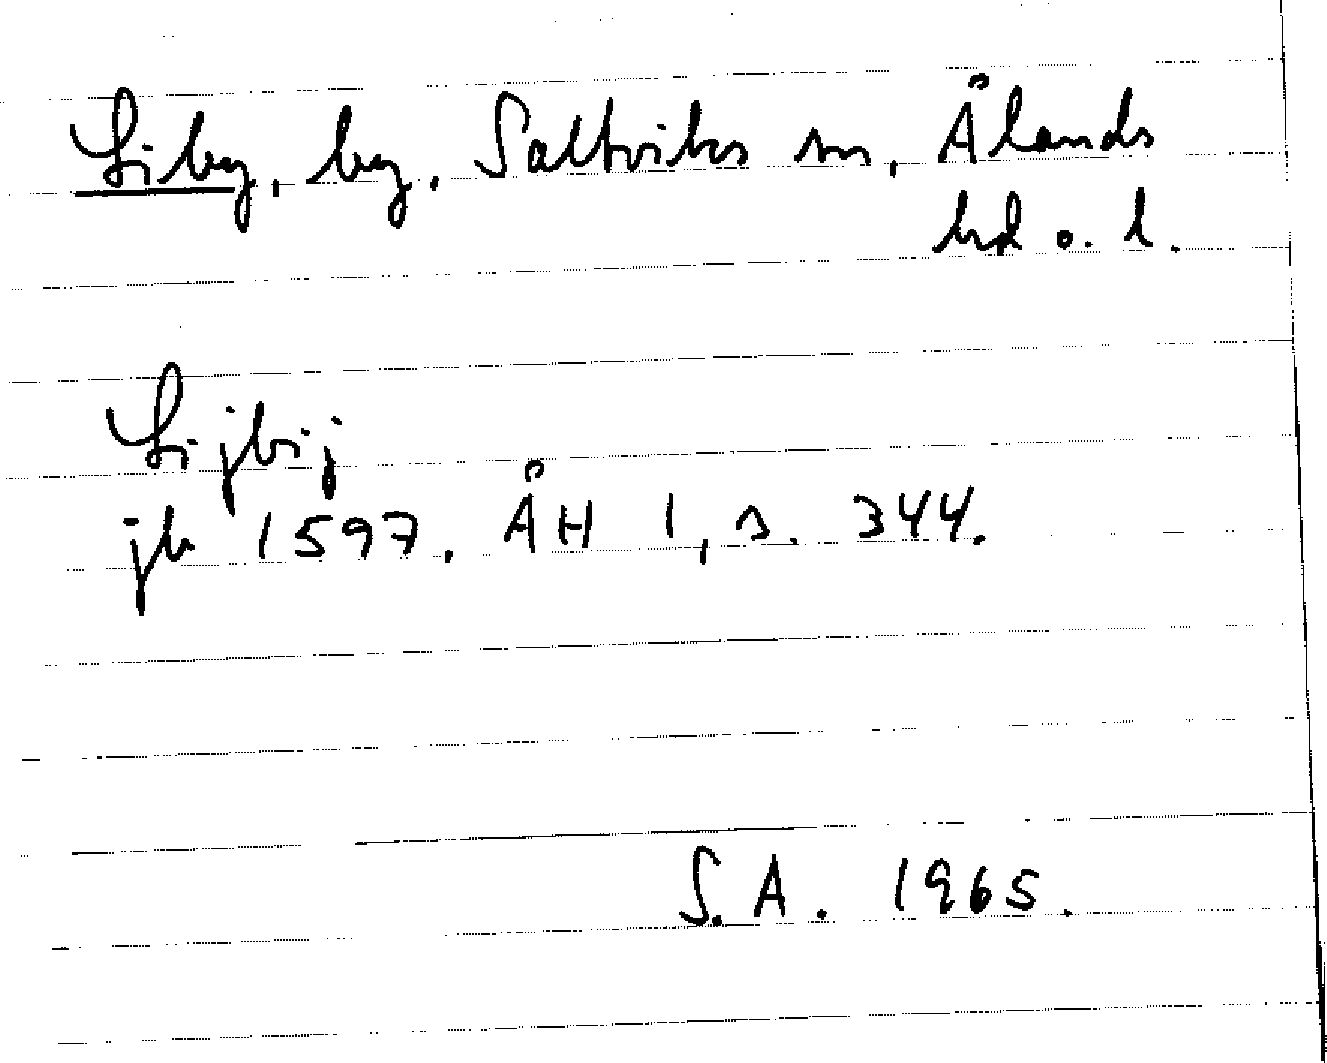 Liby, by, Saltviks sn, Ålands
hd o. l.
Lijbij
jb 1597. ÅH 1, s. 344.
S.A. 1965.